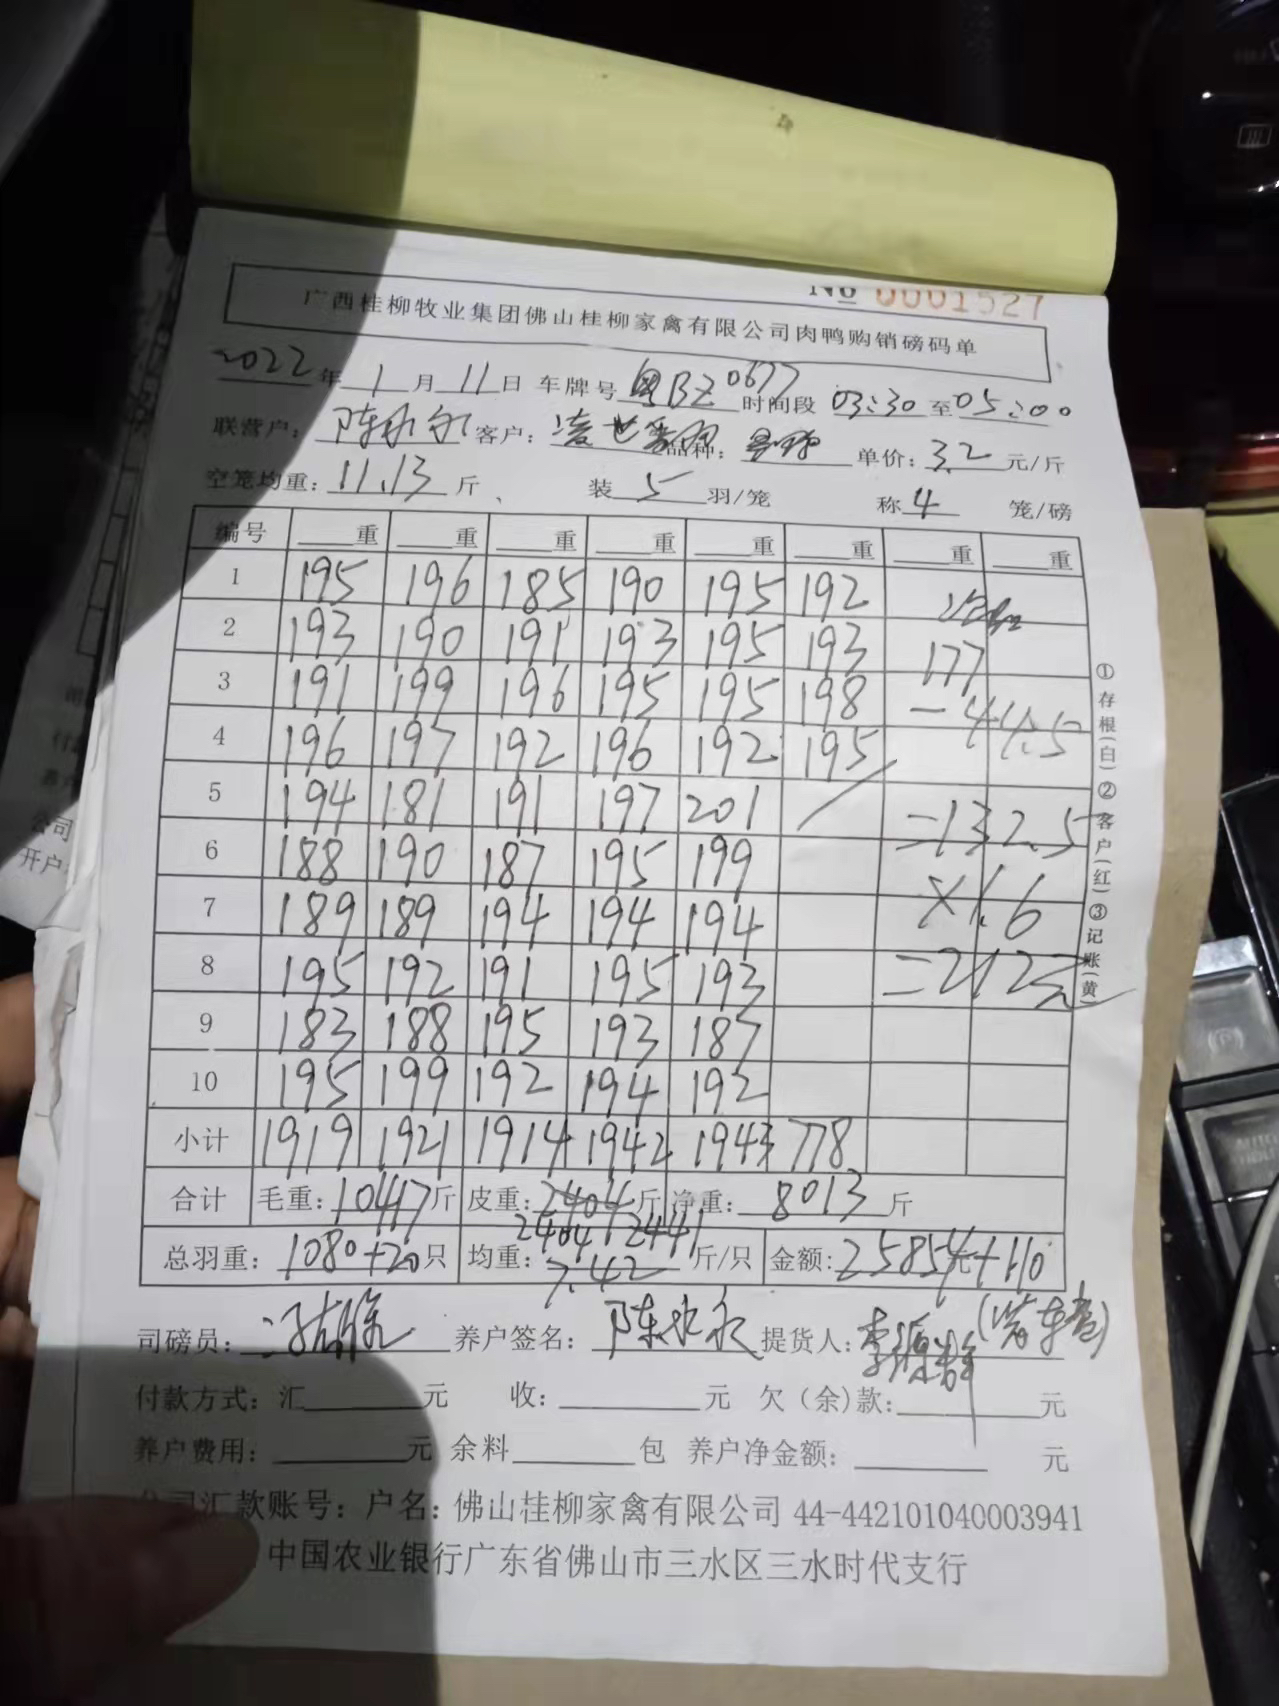 No 0001527
广西桂柳牧业集团佛山桂柳家禽有限公司肉鸭购销磅码单
2022年1月11日 车牌号 粤BZ0677 时间段 03:30至05:00
联营户: 陈永永 客户: 凌世 品种: 单价: 3.2 元/斤
空笼均重: 11.13 斤、 装 5 羽/笼 称 4 笼/磅
编号 重 重 重 重 重 重 重 重
1 195 196 185 190 195 192
2 193 190 191 193 195 193 177
3 191 199 196 195 195 198 -44.5
4 196 197 192 196 192 195
5 194 181 191 197 201 / =132.5
6 188 190 187 195 199 ×1.6
7 189 189 194 194 194
8 195 192 191 195 193 =212元
9 183 188 195 193 187
10 195 199 192 194 192
小计 1919 1921 1914 1942 1943 778
合计 毛重: 10417斤 皮重: 2404斤 净重: 8013 斤
2404 2441
总羽重: 1080+20只 均重: 7.42 斤/只 金额: 25854元+110
司磅员: 养户签名: 陈永永 提货人: 李源 (装车费)
付款方式: 汇 元 收: 元 欠(余)款: 元
养户费用: 元 余料 包 养户净金额: 元
公司汇款账号: 户名: 佛山桂柳家禽有限公司 44-442101040003941
中国农业银行广东省佛山市三水区三水时代支行
①存根(白)②客户(红)③记账(黄)
公司
开户